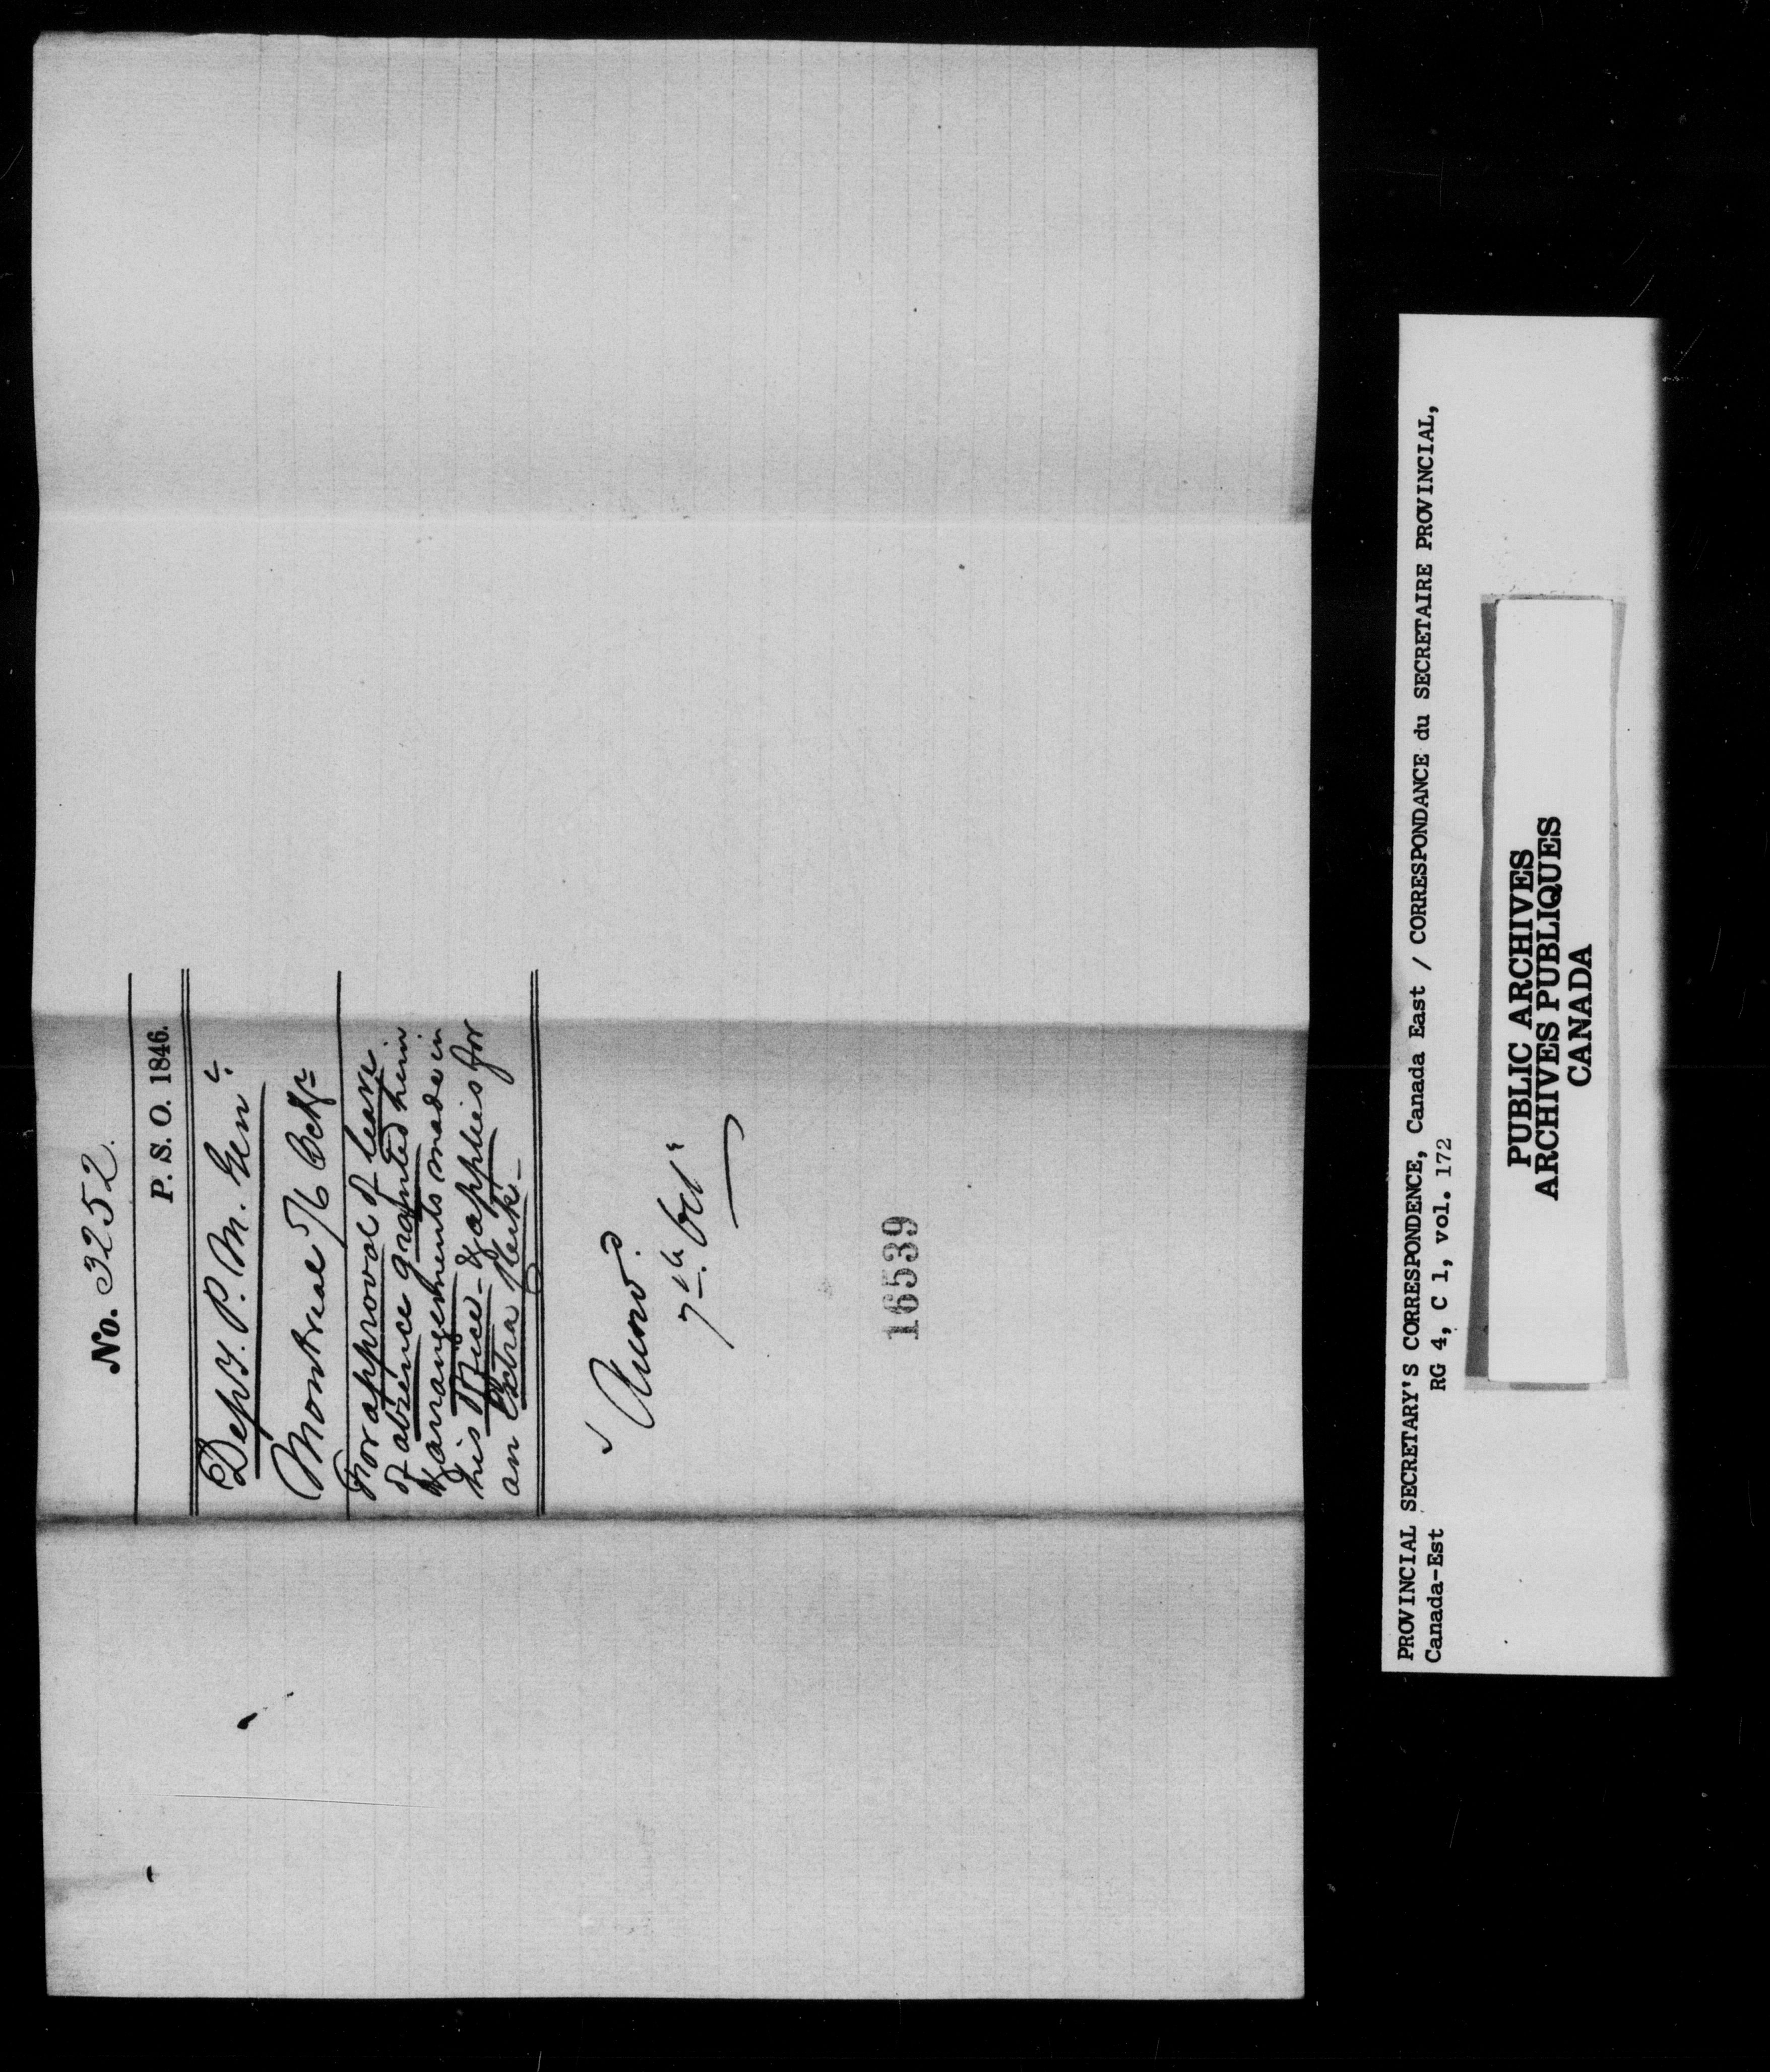 No. 3252.
P. S. O. 1846.
Depy. P. M. Genl.
Montreal 5/6 Octr
For approval of leave
of absence granted him
& arrangements made in
his Office - & applies for
an Extra Clerk -
Answd.
7th Octr
16539
PROVINCIAL SECRETARY'S CORRESPONDENCE, Canada East / CORRESPONDANCE du SECRETAIRE PROVINCIAL,
Canada-Est RG 4, C 1, vol. 172
PUBLIC ARCHIVES
ARCHIVES PUBLIQUES
CANADA